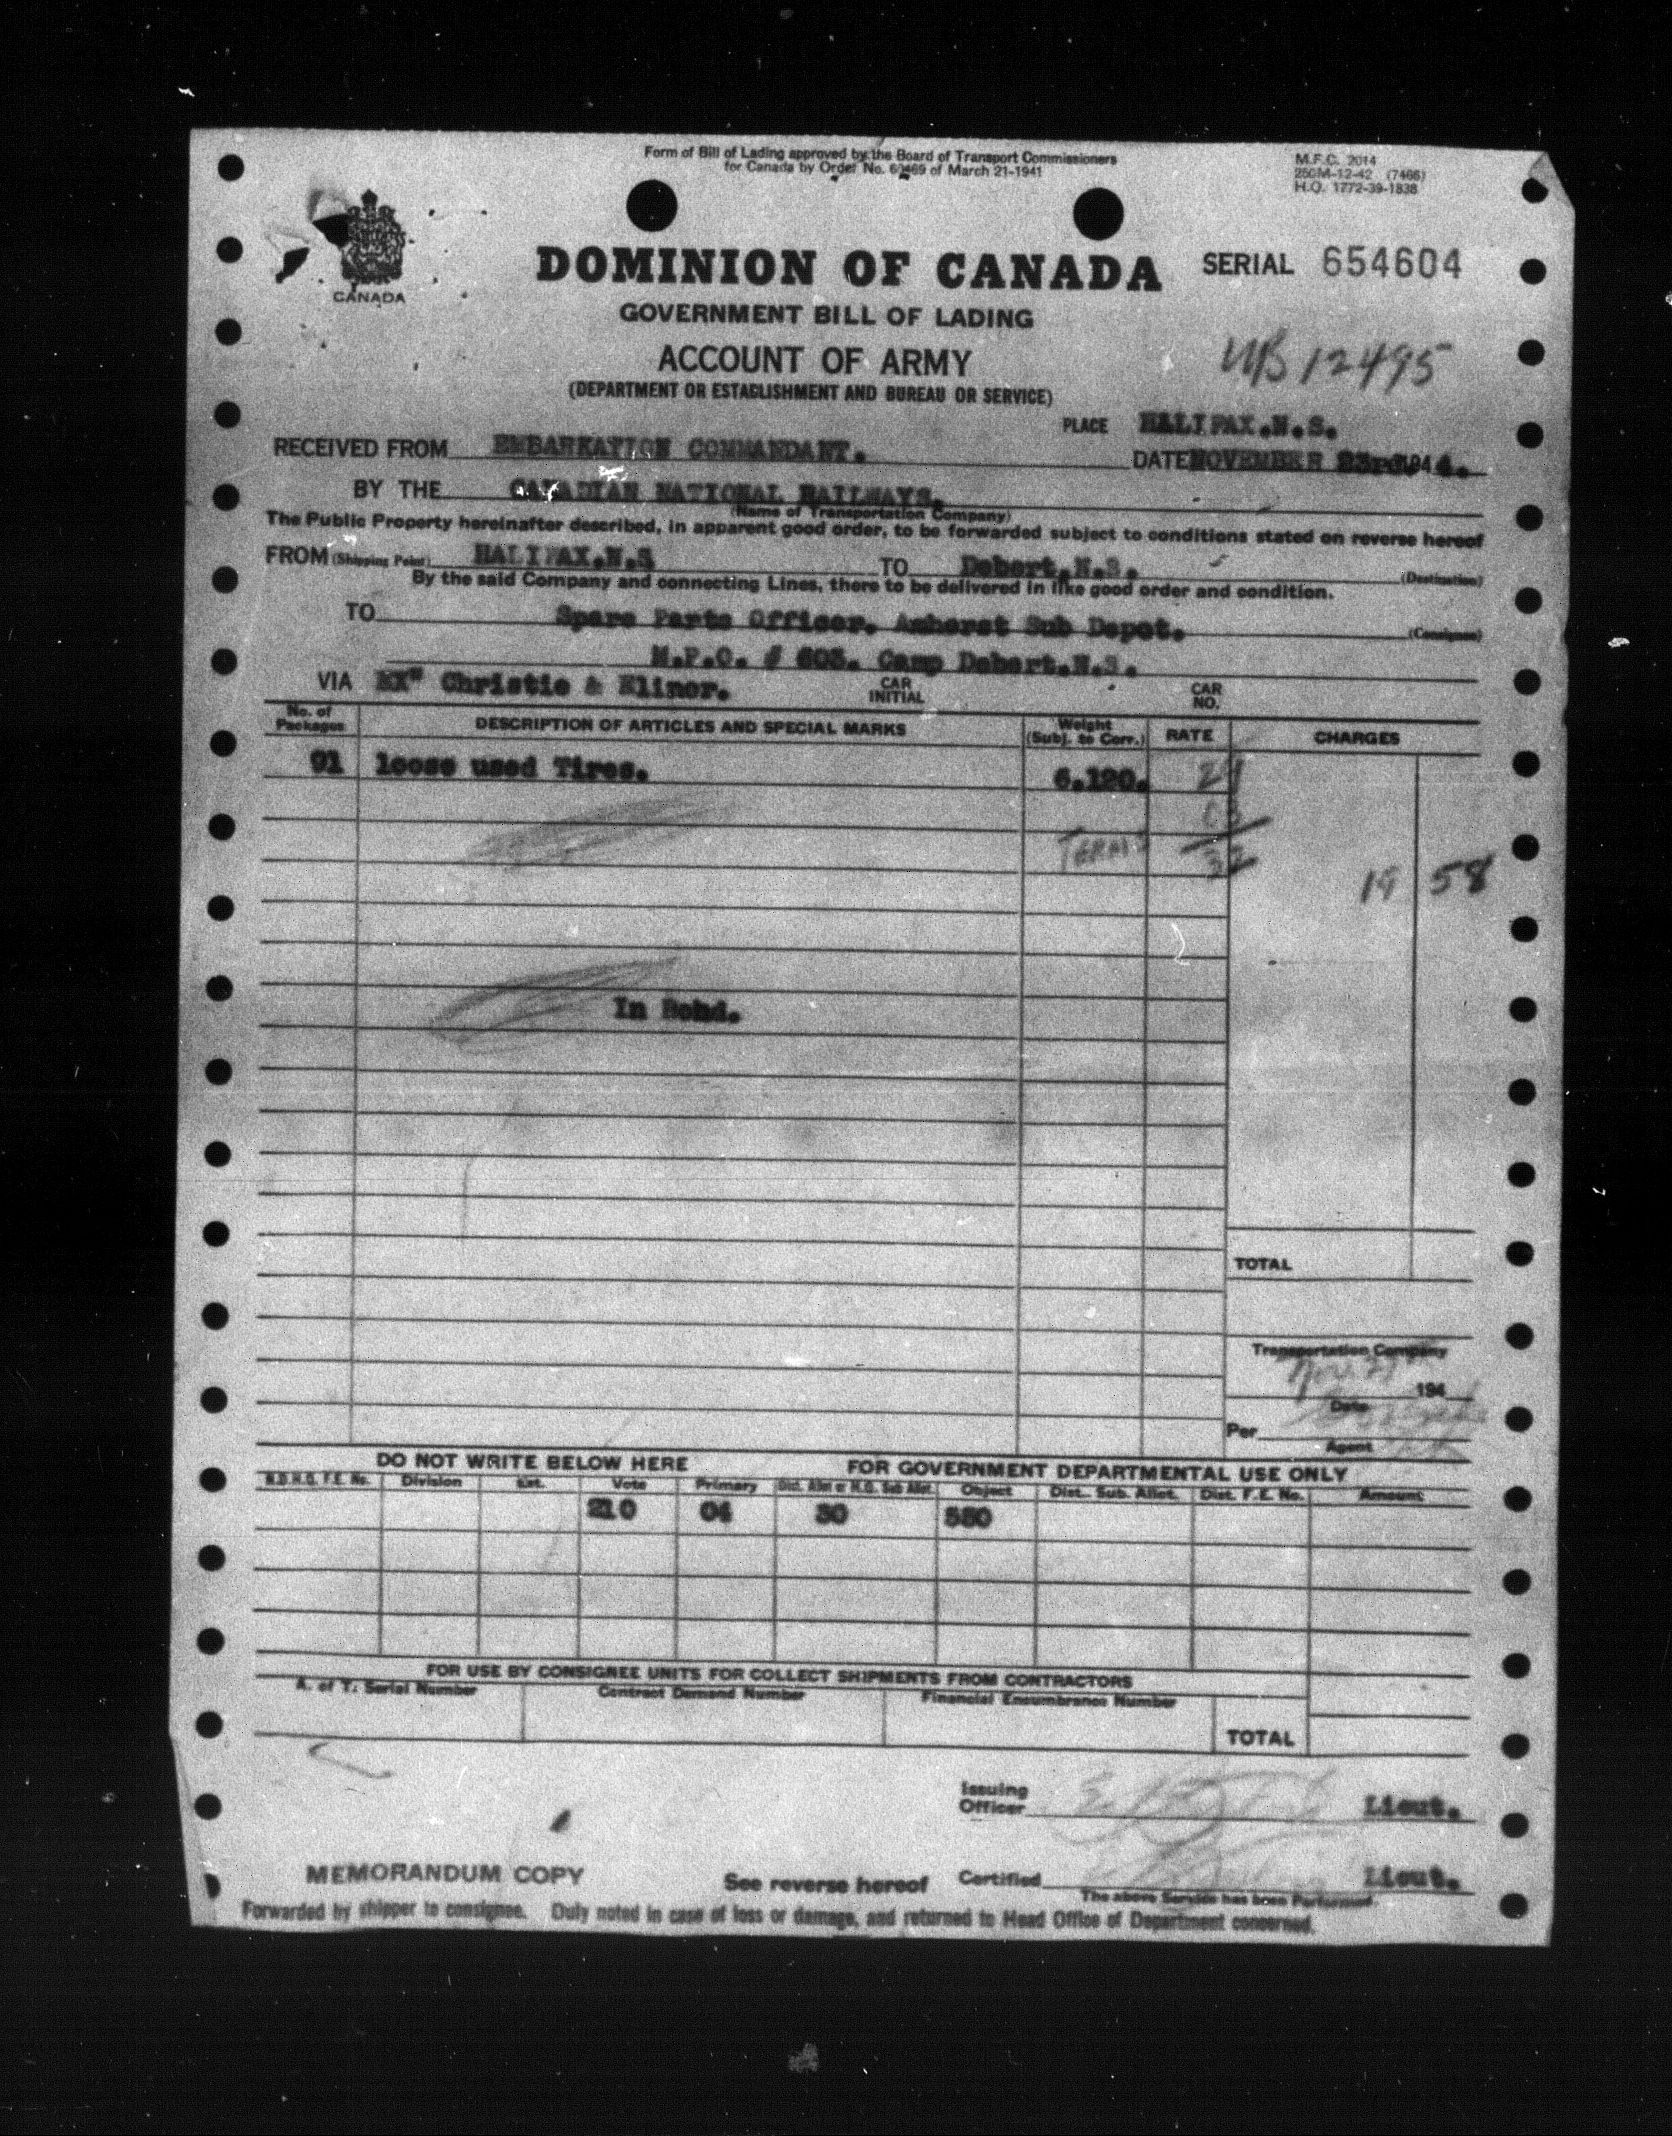 Form of Bill of Lading approved by the Board of Transport Commissioners
for Canada by Order No. 60469 of March 21-1941
M.F.C. 2014
250M-12-42 (7466)
H.Q. 1772-39-1838
CANADA
DOMINION OF CANADA
SERIAL 654604
GOVERNMENT BILL OF LADING
WB 12495
ACCOUNT OF ARMY
(DEPARTMENT OR ESTABLISHMENT AND BUREAU OR SERVICE)
PLACE HALIFAX.N.S.
RECEIVED FROM EMBARKATION COMMANDANT.
DATE NOVEMBER 23rd. 1944.
BY THE CANADIAN NATIONAL RAILWAYS.
(Name of Transportation Company)
The Public Property hereinafter described, in apparent good order, to be forwarded subject to conditions stated on reverse hereof
FROM (Shipping Point) HALIFAX.N.S TO Debert.N.S. (Destination)
By the said Company and connecting Lines, there to be delivered in like good order and condition.
TO Spare Parts Officer. Amherst Sub Depot. (Consignee)
M.P.O. # 603. Camp Debert.N.S.
VIA EX" Christie & Elinor. CAR INITIAL CAR NO.
No. of Packages DESCRIPTION OF ARTICLES AND SPECIAL MARKS Weight (Subj. to Corr.) RATE CHARGES
91 loose used Tires. 6.120. 24
08
TERMS 32
19 58
In Bond.
TOTAL
Transportation Company
Nov. 27 194
Date
Per
Agent
DO NOT WRITE BELOW HERE FOR GOVERNMENT DEPARTMENTAL USE ONLY
N.D.H.Q. F.E. No. Division Est. Vote Primary Dist. Allot or H.Q. Sub Allot. Object Dist. Sub. Allot. Dist. F.E. No. Amount
210 04 30 550
FOR USE BY CONSIGNEE UNITS FOR COLLECT SHIPMENTS FROM CONTRACTORS
A. of T. Serial Number Contract Demand Number Financial Encumbrance Number
TOTAL
Issuing
Officer Lieut.
MEMORANDUM COPY See reverse hereof Certified Lieut.
The above Service has been Performed.
Forwarded by shipper to consignee. Duly noted in case of loss or damage, and returned to Head Office of Department concerned.